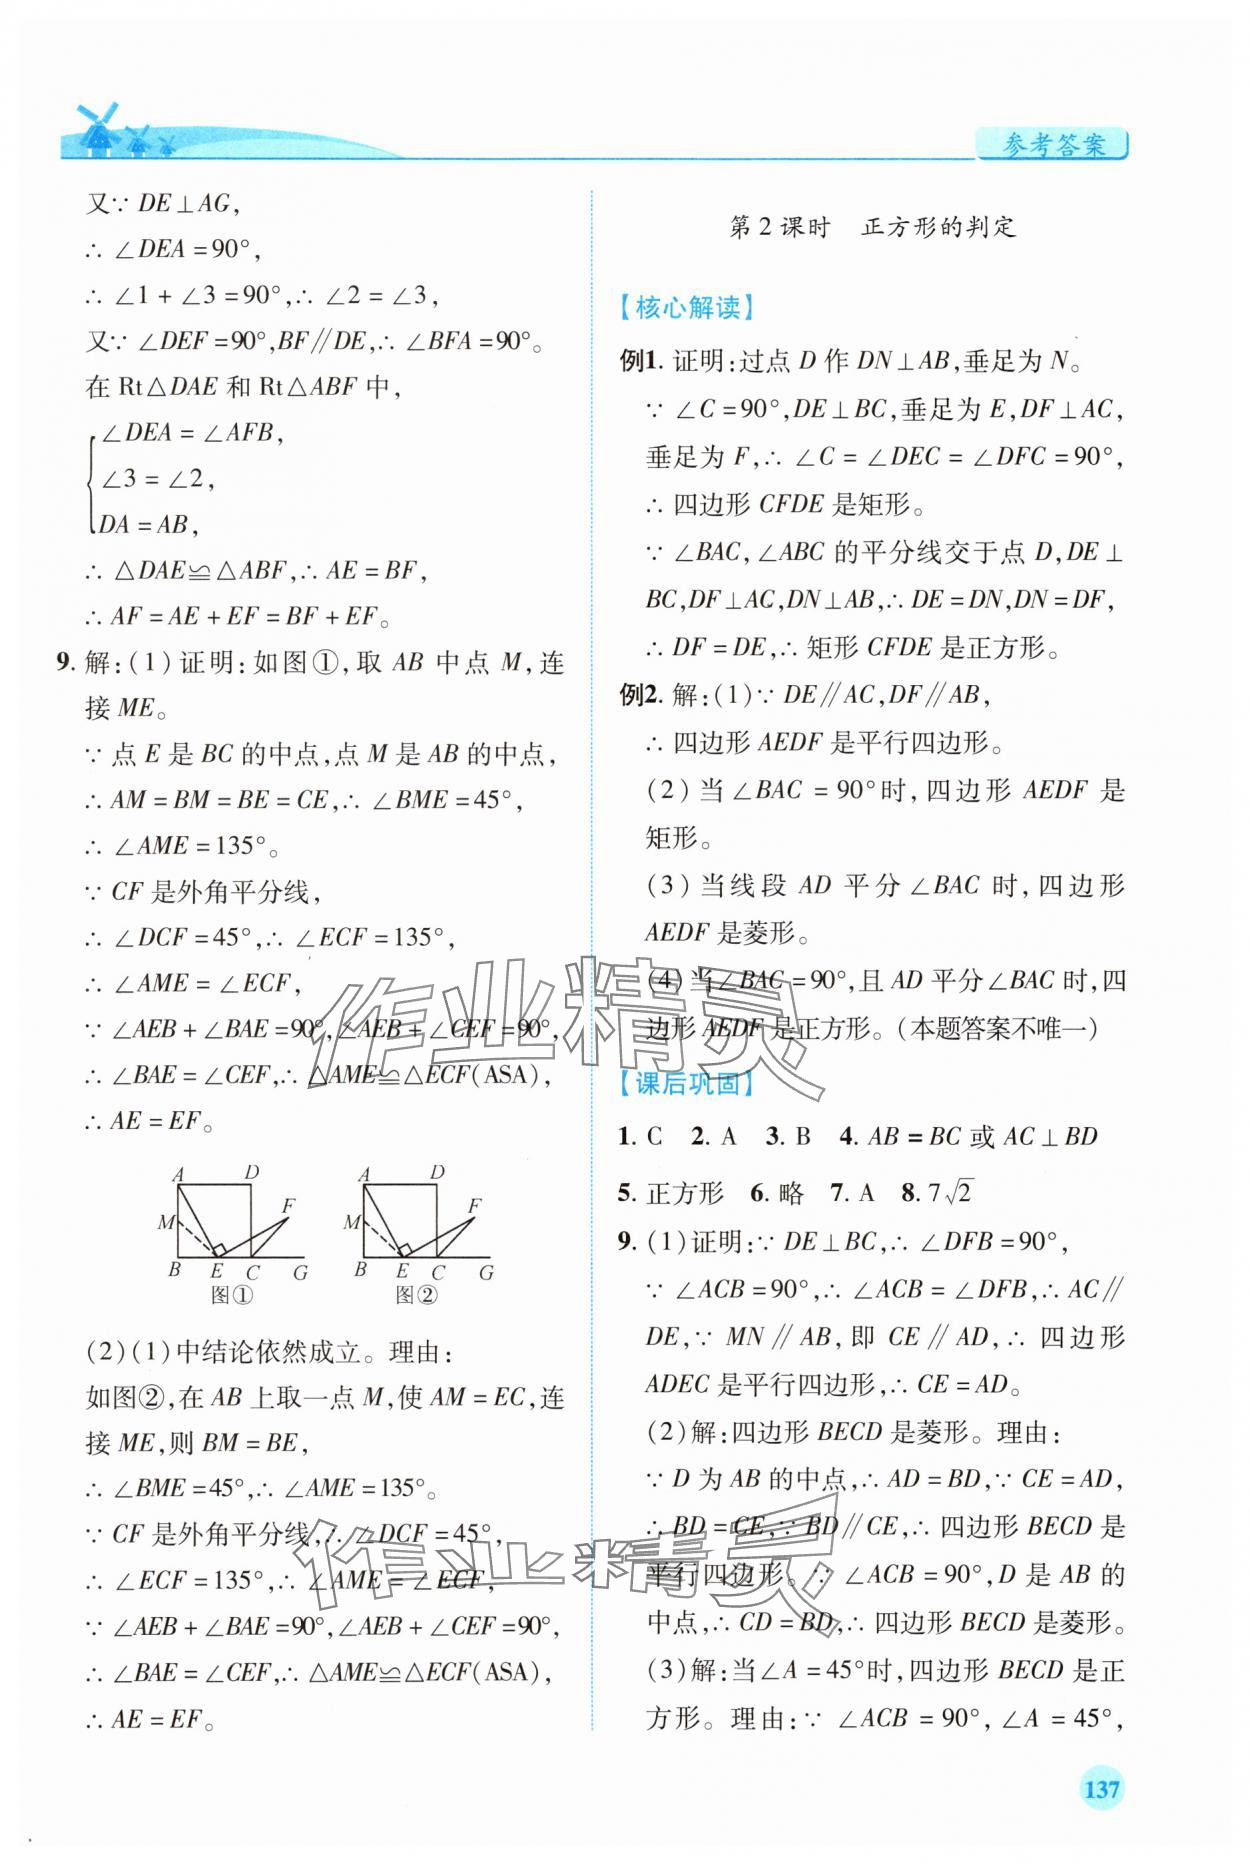 参考答案
又∵ DE⊥AG,
∴ ∠DEA=90°,
∴ ∠1+∠3=90°,∴ ∠2=∠3,
又∵ ∠DEF=90°,BF∥DE,∴ ∠BFA=90°。
在 Rt△DAE 和 Rt△ABF 中,
∠DEA=∠AFB,
∠3=∠2,
DA=AB,
∴ △DAE≌△ABF,∴ AE=BF,
∴ AF=AE+EF=BF+EF。
9. 解:(1)证明:如图①,取 AB 中点 M,连
接 ME。
∵ 点 E 是 BC 的中点,点 M 是 AB 的中点,
∴ AM=BM=BE=CE,∴ ∠BME=45°,
∴ ∠AME=135°。
∵ CF 是外角平分线,
∴ ∠DCF=45°,∴ ∠ECF=135°,
∴ ∠AME=∠ECF,
∵ ∠AEB+∠BAE=90°,∠AEB+∠CEF=90°,
∴ ∠BAE=∠CEF,∴ △AME≌△ECF(ASA),
∴ AE=EF。
A D F M B E C G
图①
A D F M B E C G
图②
(2)(1)中结论依然成立。理由:
如图②,在 AB 上取一点 M,使 AM=EC,连
接 ME,则 BM=BE,
∴ ∠BME=45°,∴ ∠AME=135°。
∵ CF 是外角平分线,∴ ∠DCF=45°,
∴ ∠ECF=135°,∴ ∠AME=∠ECF,
∵ ∠AEB+∠BAE=90°,∠AEB+∠CEF=90°,
∴ ∠BAE=∠CEF,∴ △AME≌△ECF(ASA),
∴ AE=EF。
第 2 课时 正方形的判定
【核心解读】
例1. 证明:过点 D 作 DN⊥AB,垂足为 N。
∵ ∠C=90°,DE⊥BC,垂足为 E,DF⊥AC,
垂足为 F,∴ ∠C=∠DEC=∠DFC=90°,
∴ 四边形 CFDE 是矩形。
∵ ∠BAC,∠ABC 的平分线交于点 D,DE⊥
BC,DF⊥AC,DN⊥AB,∴ DE=DN,DN=DF,
∴ DF=DE,∴ 矩形 CFDE 是正方形。
例2. 解:(1)∵ DE∥AC,DF∥AB,
∴ 四边形 AEDF 是平行四边形。
(2)当∠BAC=90°时,四边形 AEDF 是
矩形。
(3)当线段 AD 平分∠BAC 时,四边形
AEDF 是菱形。
(4)当∠BAC=90°,且 AD 平分∠BAC 时,四
边形 AEDF 是正方形。(本题答案不唯一)
【课后巩固】
1. C 2. A 3. B 4. AB=BC 或 AC⊥BD
5. 正方形 6. 略 7. A 8. 7√2
9. (1)证明:∵ DE⊥BC,∴ ∠DFB=90°,
∵ ∠ACB=90°,∴ ∠ACB=∠DFB,∴ AC∥
DE,∵ MN∥AB,即 CE∥AD,∴ 四边形
ADEC 是平行四边形,∴ CE=AD。
(2)解:四边形 BECD 是菱形。理由:
∵ D 为 AB 的中点,∴ AD=BD,∵ CE=AD,
∴ BD=CE,∵ BD∥CE,∴ 四边形 BECD 是
平行四边形。∵ ∠ACB=90°,D 是 AB 的
中点,∴ CD=BD,∴ 四边形 BECD 是菱形。
(3)解:当∠A=45°时,四边形 BECD 是正
方形。理由:∵ ∠ACB=90°,∠A=45°,
137
作业精灵
作业精灵